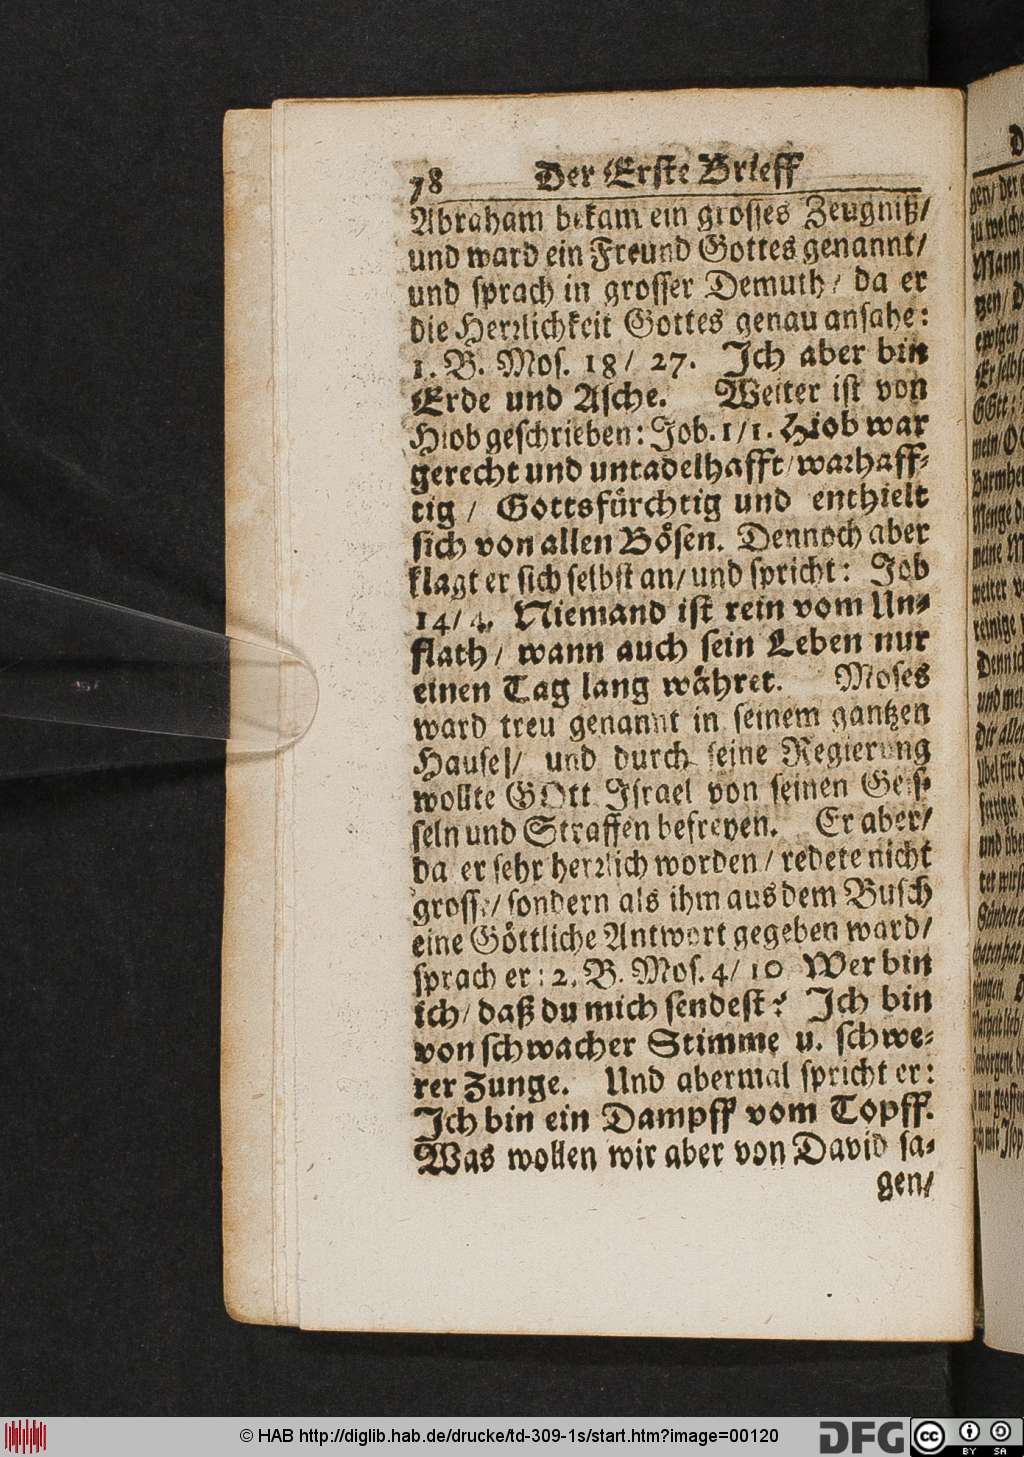 78 Der Erste Brieff
Abraham bekam ein grosses Zeugniß/
und ward ein Freund Gottes genannt/
und sprach in grosser Demuth/ da er
die Herrlichkeit Gottes genau ansahe:
1. B. Mos. 18/ 27. Ich aber bin
Erde und Asche. Weiter ist von
Hiob geschrieben: Job. 1/1. Hiob war
gerecht und untadelhafft/ warhaff-
tig/ Gottsfürchtig und enthielt
sich von allen Bösen. Dennoch aber
klagt er sich selbst an/ und spricht: Job
14/4. Niemand ist rein vom Un-
flath/ wann auch sein Leben nur
einen Tag lang währet. Moses
ward treu genannt in seinem gantzen
Hause/ und durch seine Regierung
wollte GOtt Israel von seinen Geis-
seln und Straffen befreyen. Er aber/
da er sehr herrlich worden/ redete nicht
grosse/ sondern als ihm aus dem Busch
eine Göttliche Antwort gegeben ward/
sprach er: 2. B. Mos. 4/ 10 Wer bin
ich/ daß du mich sendest? Ich bin
von schwacher Stimme u. schwe-
rer Zunge. Und abermal spricht er:
Ich bin ein Dampff vom Topff.
Was wollen wir aber von David sa-
gen/
© HAB http://diglib.hab.de/drucke/td-309-1s/start.htm?image=00120
DFG
cc
BY SA